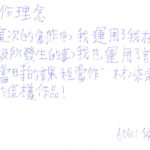 作理念
這次的創作中,我運用了我在
所發生的事,我也運用了
當日的課程當作 材,來
的這樣作品!
60601